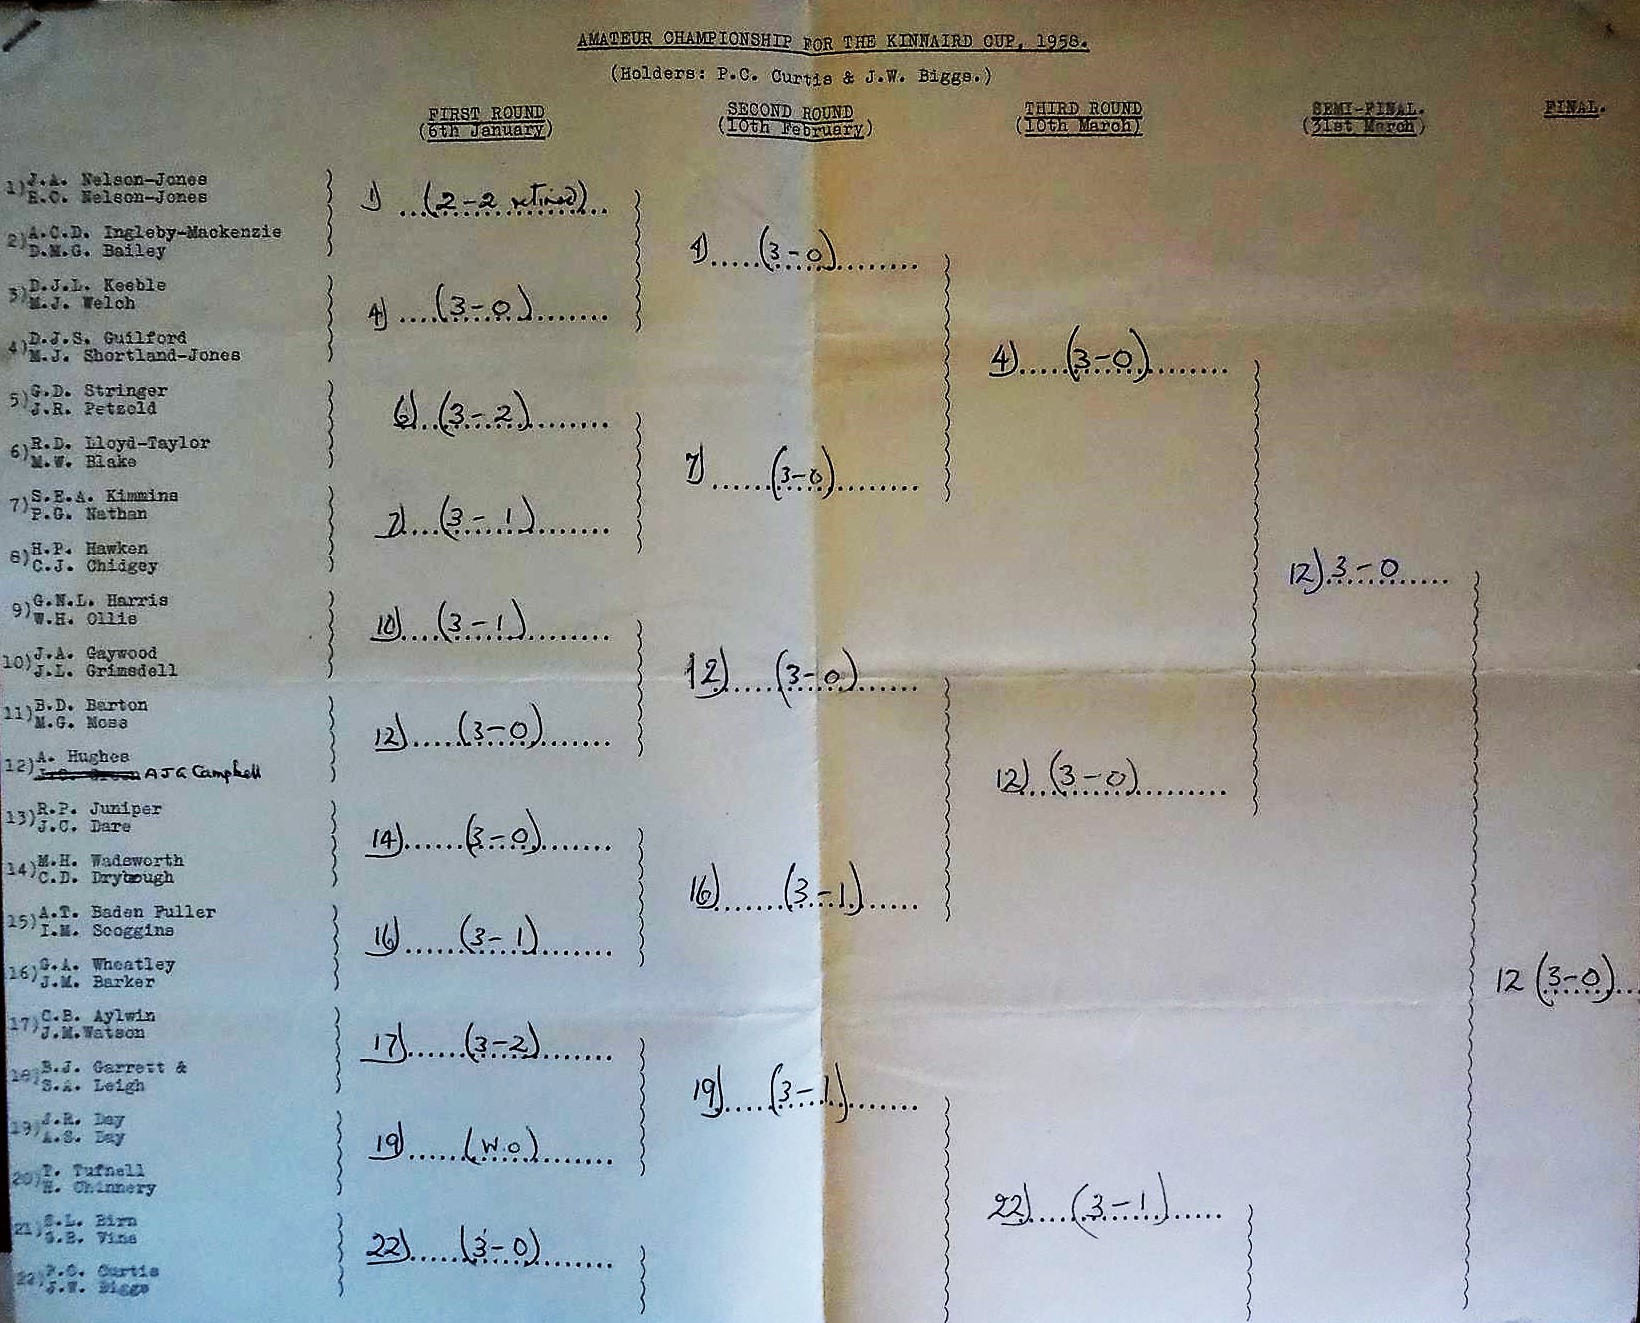 AMATEUR CHAMPIONSHIP FOR THE KINNAIRD CUP, 1958.
(Holders: P.C. Curtis & J.W. Biggs.)
FIRST ROUND
(6th January)
SECOND ROUND
(10th February)
THIRD ROUND
(10th March)
SEMI-FINAL.
(31st March)
FINAL.
1) J.A. Nelson-Jones
R.C. Nelson-Jones
2) A.C.D. Ingleby-Mackenzie
D.M.G. Bailey
3) D.J.L. Keeble
M.J. Welch
4) D.J.S. Guilford
M.J. Shortland-Jones
5) G.D. Stringer
J.R. Petzold
6) R.D. Lloyd-Taylor
M.W. Blake
7) S.E.A. Kimmins
P.G. Nathan
8) H.P. Hawken
C.J. Chidgey
9) G.N.L. Harris
W.H. Ollis
10) J.A. Gaywood
J.L. Grimsdell
11) B.D. Barton
M.G. Moss
12) A. Hughes
AJG Campbell
13) R.P. Juniper
J.C. Dare
14) M.H. Wadsworth
C.D. Drybough
15) A.T. Baden Fuller
I.M. Scoggins
16) G.A. Wheatley
J.M. Barker
17) C.B. Aylwin
J.M.Watson
18) B.J. Garrett &
S.A. Leigh
19) J.R. Day
A.S. Day
20) T. Tufnell
H. Chinnery
21) S.L. Birn
G.B. Vine
22) P.C. Curtis
J.W. Biggs
1) (2-2 retired)
4) (3-0)
6) (3-2)
7) (3-1)
10) (3-1)
12) (3-0)
14) (3-0)
16) (3-1)
17) (3-2)
19) (W.O)
22) (3-0)
4) (3-0)
7) (3-0)
12) (3-0)
16) (3-1)
19) (3-1)
4) (3-0)
12) (3-0)
22) (3-1)
12) 3-0
12 (3-0)